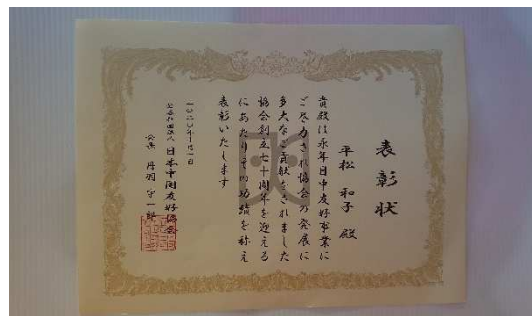 表彰状
平松 和子 殿
貴殿は永年日中友好事業に
ご尽力され協会の発展に
多大なご貢献をされました
協会創立七十周年を迎える
にあたりその功績を称え
表彰いたします
二〇二〇年十月一日
公益社団法人 日本中国友好協会
会長 丹羽 宇一郎